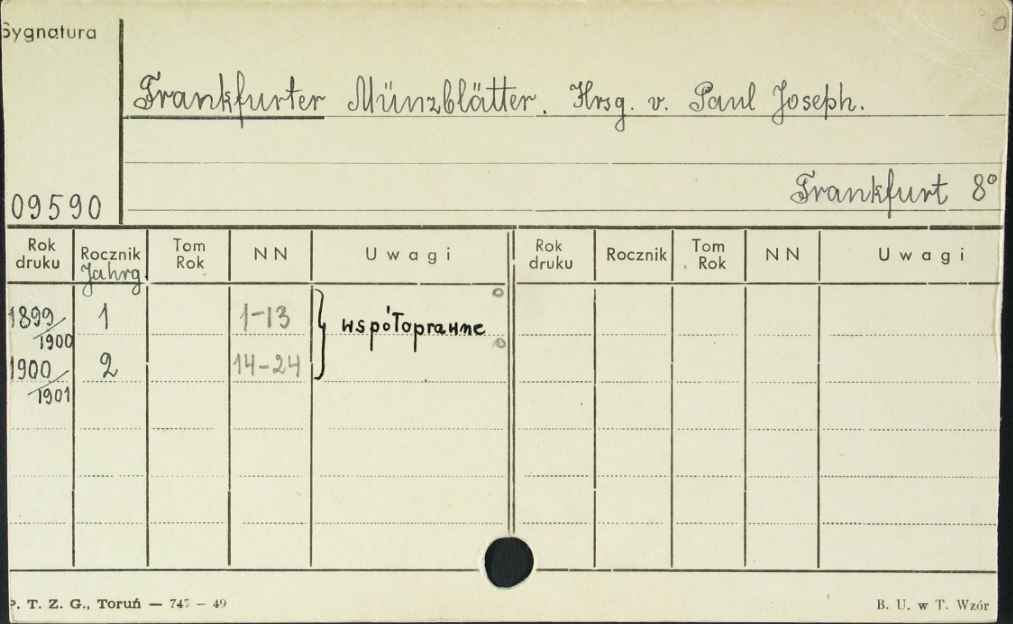 Sygnatura
Frankfurter Münzblätter. Hrsg. v. Paul Joseph.
Frankfurt 8°
09590
Rok druku Rocznik Jahrg Tom Rok NN Uwagi Rok druku Rocznik Tom Rok NN Uwagi
1899/1900 1 1-13 współoprawne
1900/1901 2 14-24
P. T. Z. G., Toruń — 747 — 49 B. U. w T. Wzór